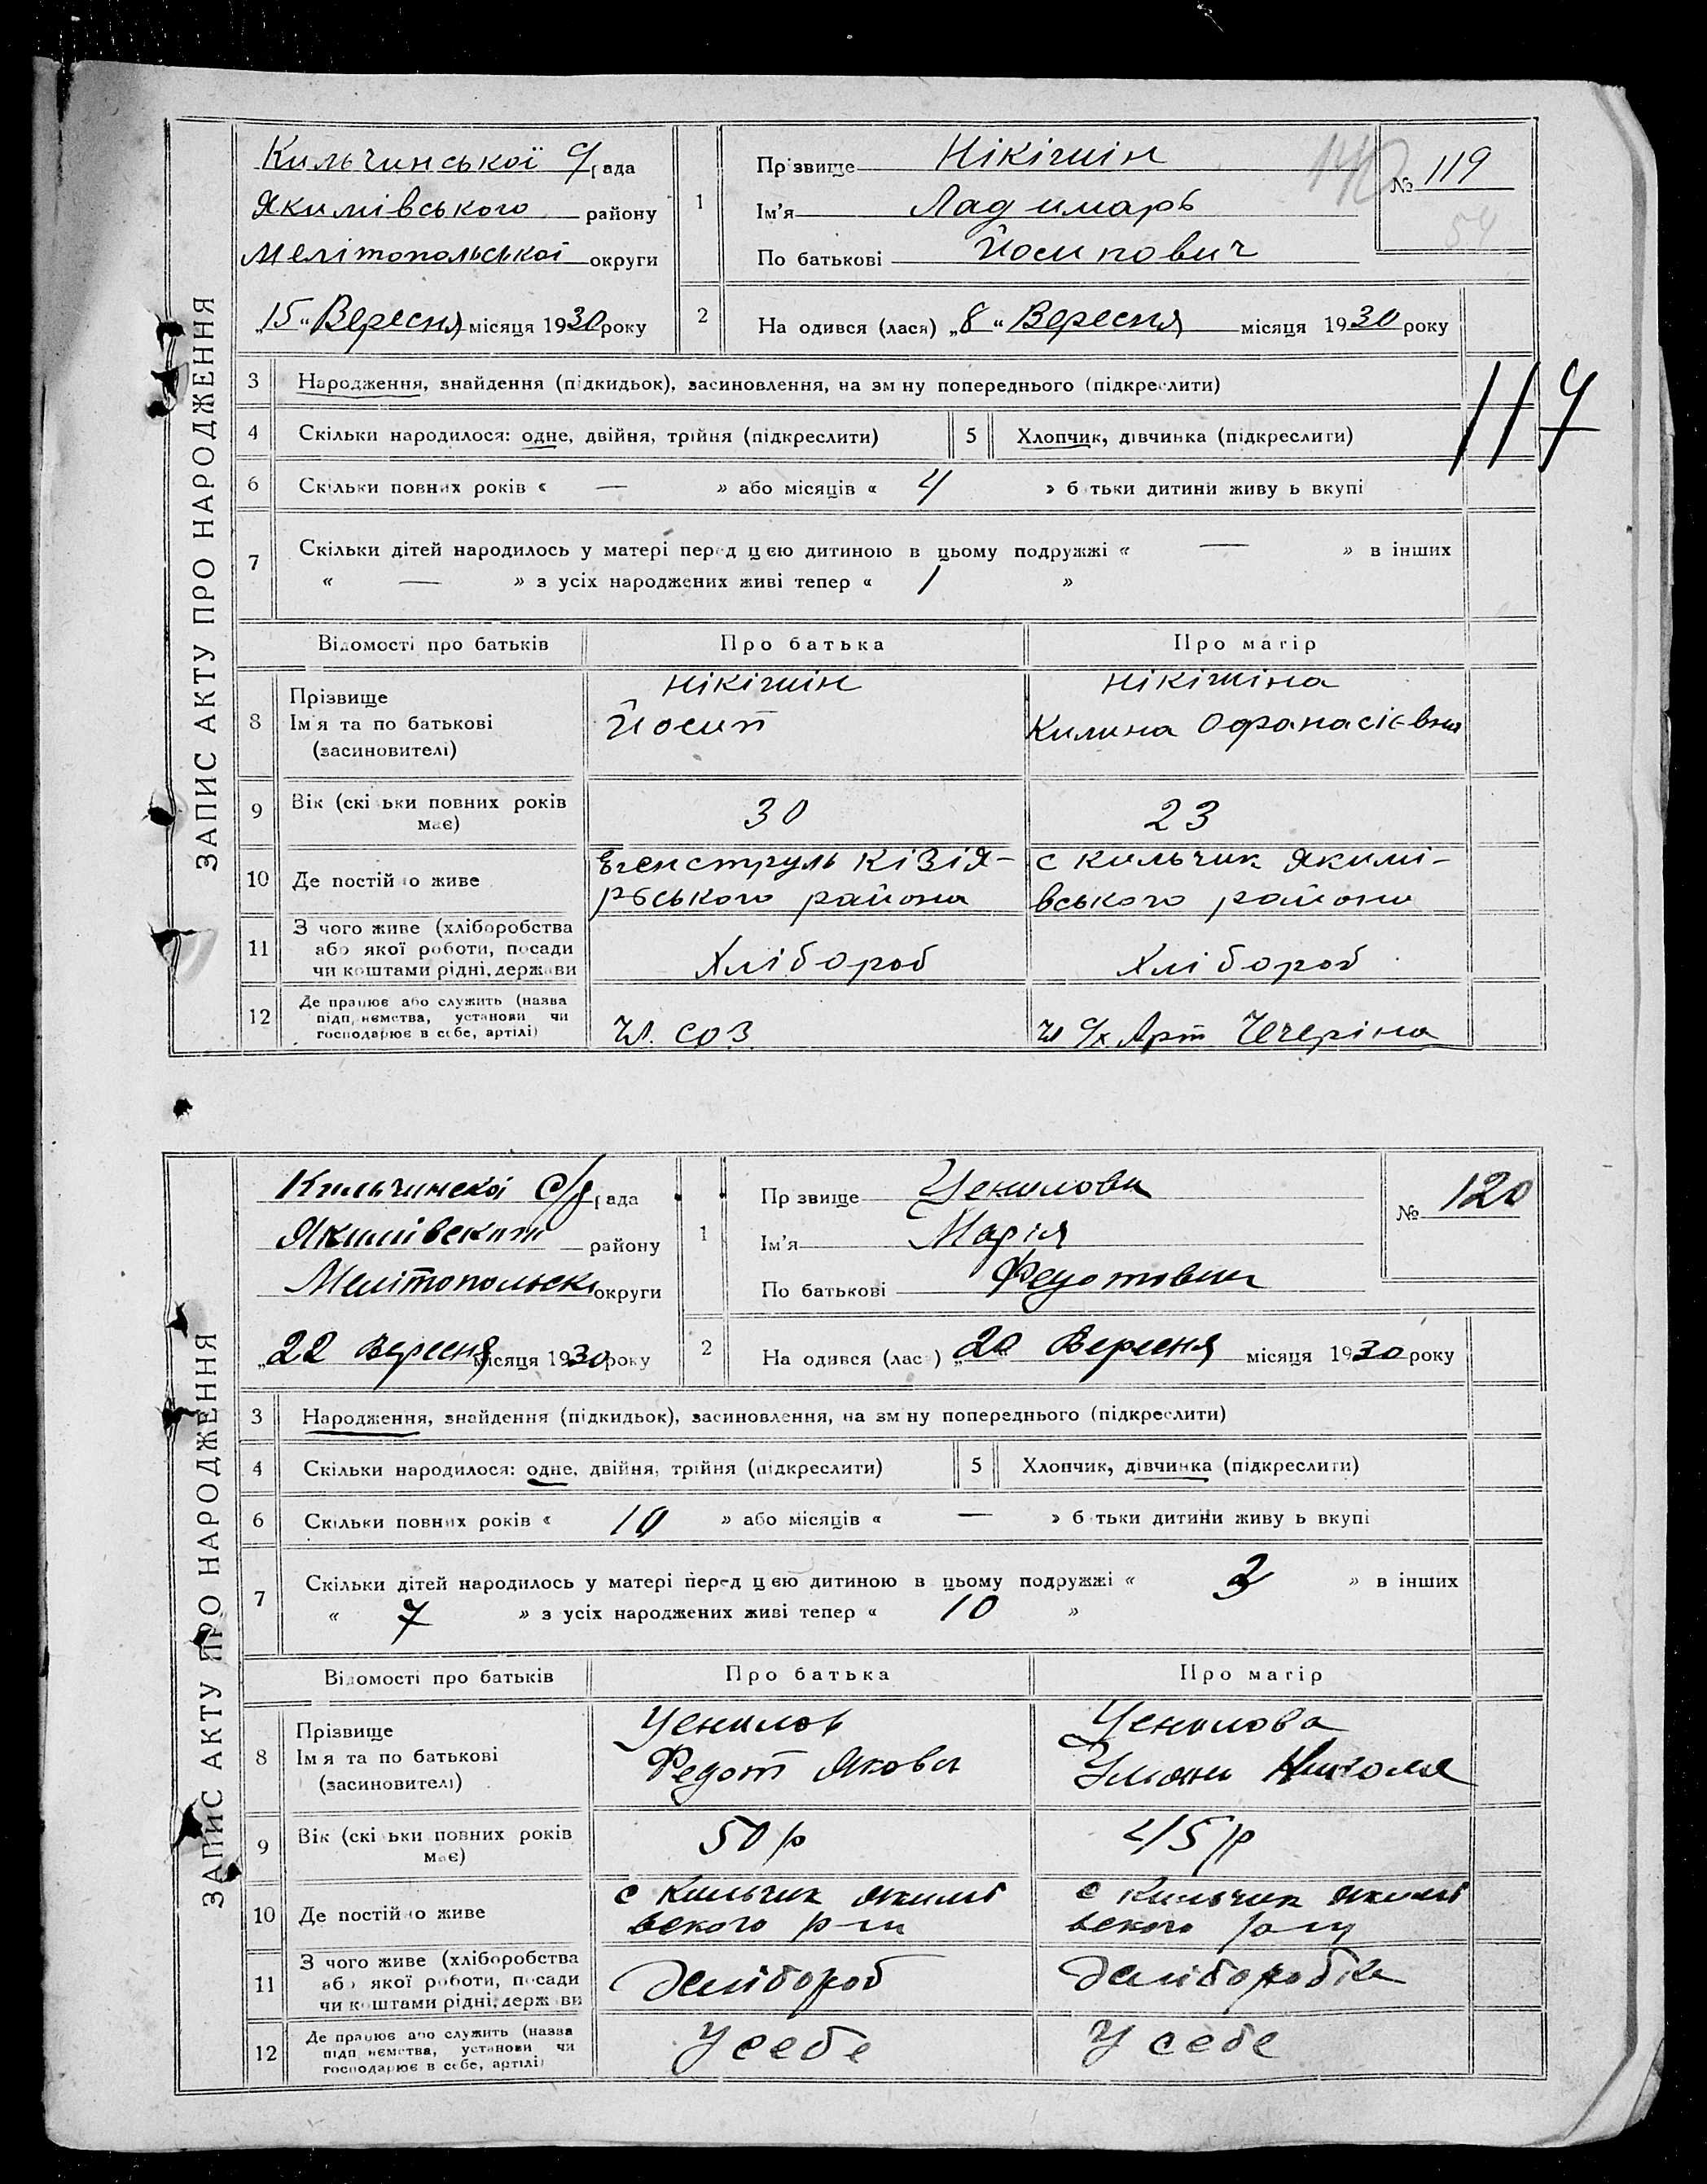 ЗАПИС АКТУ ПРО НАРОДЖЕННЯ
Кильчинської с/рада
Якимівського району
Мелітопольської округи
15 „ Вересня місяця 1930 року
1
Прізвище Нікішін
Ім'я Ладимарь
По батькові Йосипович
№ 119
54
2
На одився (лася) „8 “ Вересня місяця 1930 року
3 Народження, знайдення (підкидьок), засиновлення, на зм ну попереднього (підкреслити)
117
4 Скільки народилося: одне, двійня, трійня (підкреслити)
5 Хлопчик, дівчинка (підкреслити)
6 Скільки повних років « — » або місяців « 4 » б тьки дитини живу ь вкупі
7 Скільки дітей народилось у матері перед цією дитиною в цьому подружжі « — » в інших
« — » з усіх народжених живі тепер « 1 »
Відомості про батьків Про батька Про матір
8
Прізвище
Ім'я та по батькові
(засиновителі)
Нікішін
Йосип
Нікішіна
Килина Офанасієвна
9
Вік (скі ьки повних років
має)
30 23
10 Де постійно живе
Егенструль Кізія-
рського района
с Кильчик Якимі-
вського района
11
З чого живе (хліборобства
або якої роботи, посади
чи коштами рідні, держави
Хлібороб Хлібороб
12
Де працює або служить (назва
підп иємства, установи чи
господарює в себе, артілі)
Чл. СОЗ
Чл с/х Арт Чечеріна
ЗАПИС АКТУ ПРО НАРОДЖЕННЯ
Кильчинскої с/рада
Якимівског району
Мелітопольск округи
„22 Вересня місяця 1930 року
1
Пр звище Ценилова
Ім'я Марія
По батькові Федотовна
№ 120
2
На одився (лас ) „20 Вересня місяця 1930 року
3 Народження, знайдення (підкидьок), засиновлення, на зм ну попереднього (підкреслити)
4 Скільки народилося: одне, двійня, трійня (підкреслити)
5 Хлопчик, дівчинка (підкреслити)
6 Скільки повних років « 10 » або місяців « — » б тьки дитини живу ь вкупі
7 Скільки дітей народилось у матері перед цією дитиною в цьому подружжі « 3 » в інших
« 7 » з усіх народжених живі тепер « 10 »
Відомості про батьків Про батька Про матір
8
Прізвище
Ім'я та по батькові
(засиновителі)
Ценилов
Федот Яковл
Ценилова
Улияна Никола
9
Вік (скі ьки повних років
має)
50 р 45 р
10 Де постійно живе
с Кильчик Якимі
вского р-ну
с Кильчик Якимі
вского р-ну
11
З чого живе (хліборобства
або якої роботи, посади
чи коштами рідні, держ ви
Хлібороб Хліборобка
12
Де працює або служить (назва
підп иємства, установи чи
господарює в себе, артілі)
У себе У себе